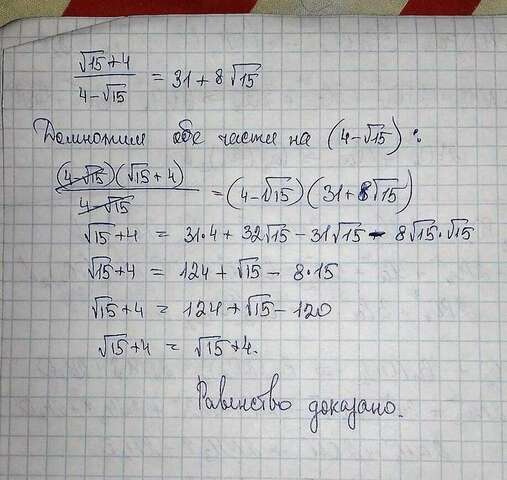 (√15+4)/(4-√15) = 31+8√15
Домножим обе части на (4-√15):
((4-√15)(√15+4))/(4-√15) = (4-√15)(31+8√15)
√15+4 = 31·4+32√15-31√15-8√15·√15
√15+4 = 124+√15-8·15
√15+4 = 124+√15-120
√15+4 = √15+4.
Равенство доказано.